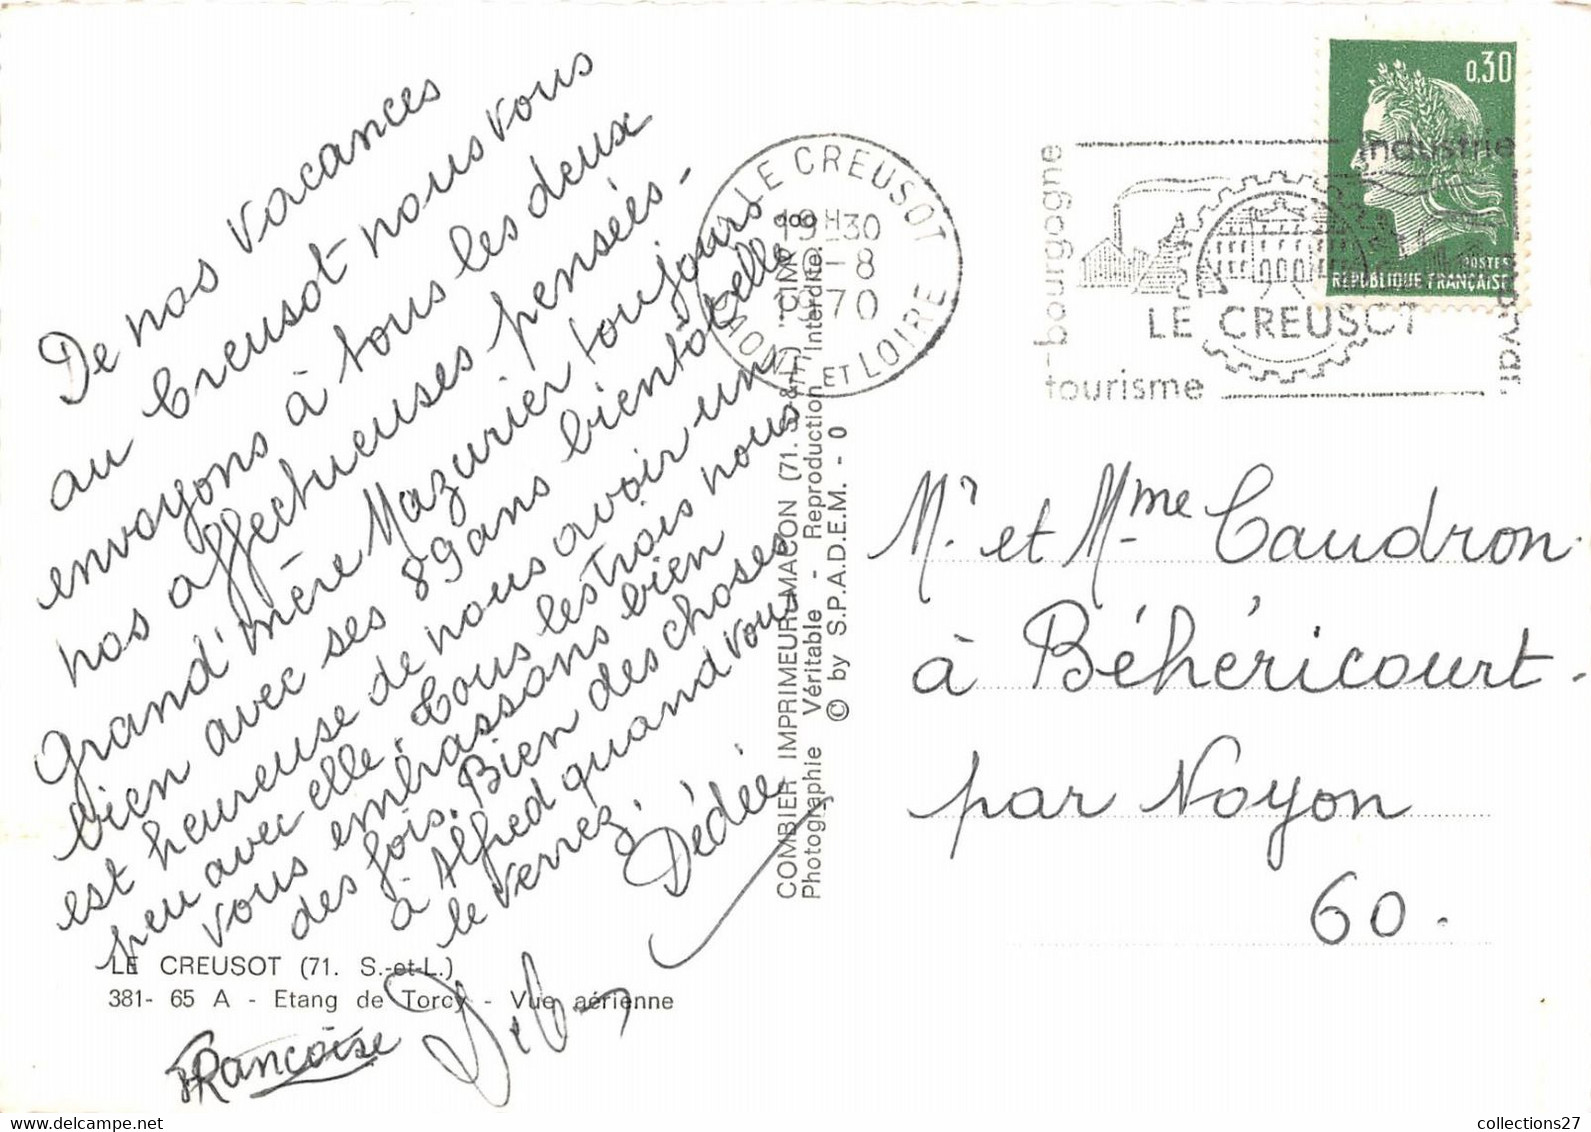 De nos vacances
au Creusot nous vous
envoyons à tous les deux
nos affectueuses pensées.
Grand'mère Mazurier toujours
bien avec ses 89 ans bientôt elle
est heureuse de nous avoir un
peu avec elle. Tous les trois nous
vous embrassons bien
des fois. Bien des choses
à Alfred quand vous
le verrez.
Dédée
Françoise
LE CREUSOT (71. S.-et-L.)
381- 65 A - Etang de Torcy - Vue aérienne
COMBIER IMPRIMEUR MACON (71. S.-&-L.) "CIM"
Photographie Véritable - Reproduction Interdite.
© by S.P.A.D.E.M. - 0
LE CREUSOT
19H30
-8
1970
ET LOIRE
bourgogne
industrie
LE CREUSOT
tourisme
0,30
POSTES
REPUBLIQUE FRANÇAISE
Mr. et Mme Caudron.
à Béhéricourt.
par Noyon
60.
www.delcampe.net
collections27